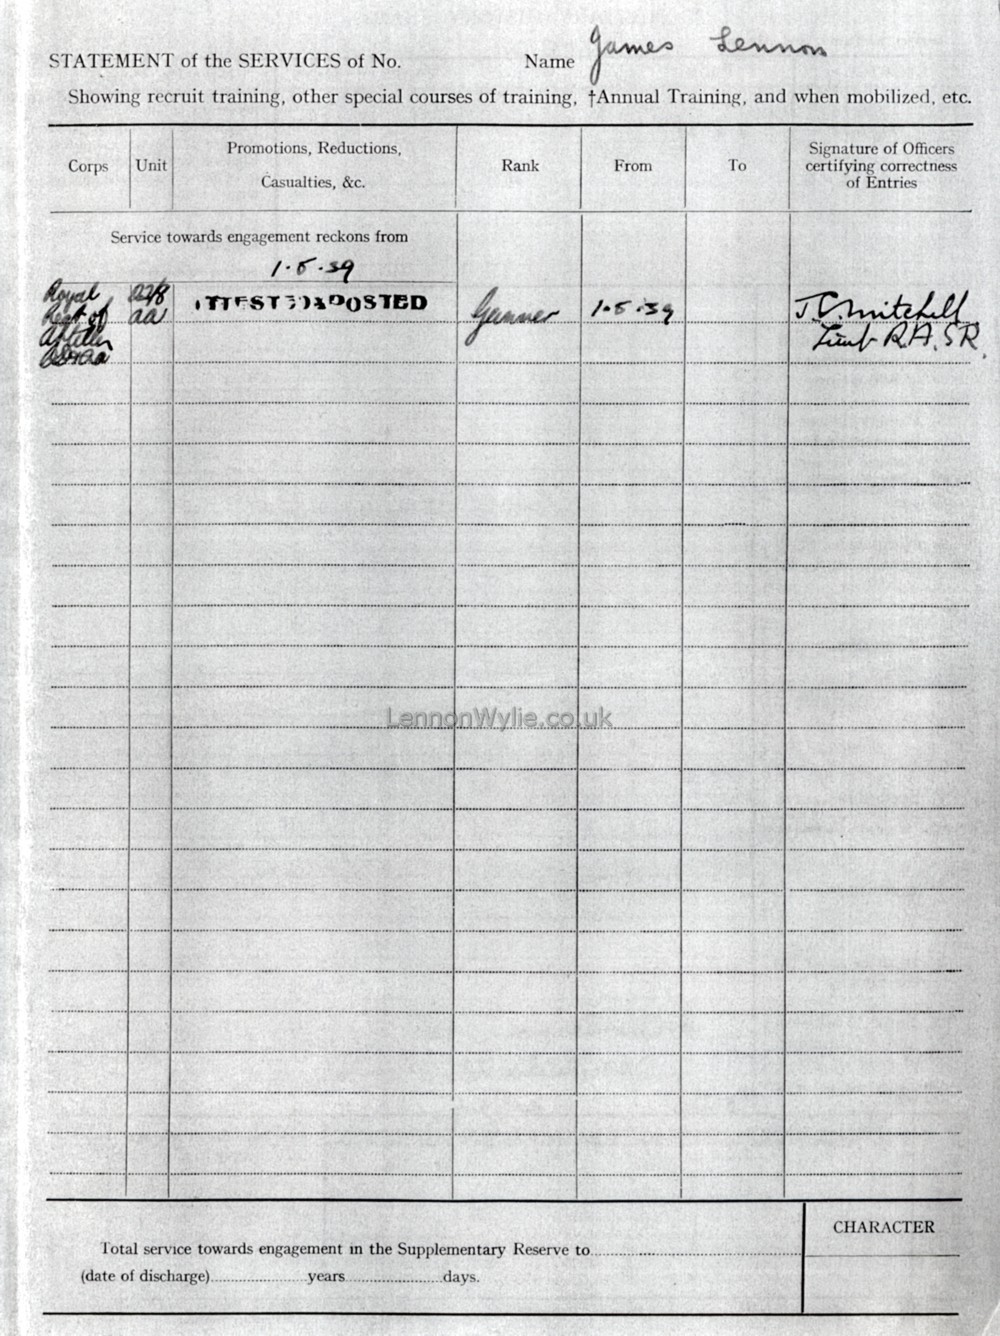 STATEMENT of the SERVICES of No. Name James Lennon
Showing recruit training, other special courses of training, †Annual Training, and when mobilized, etc.
Corps Unit Promotions, Reductions, Casualties, &c. Rank From To Signature of Officers certifying correctness of Entries
Service towards engagement reckons from
1.5.39
Royal 22/8 POSTED Gunner 1.5.39 J.C. Mitchell
Regt of aa Lieut R.A. S.R.
Artillery
LennonWylie.co.uk
CHARACTER
Total service towards engagement in the Supplementary Reserve to
(date of discharge) years days.